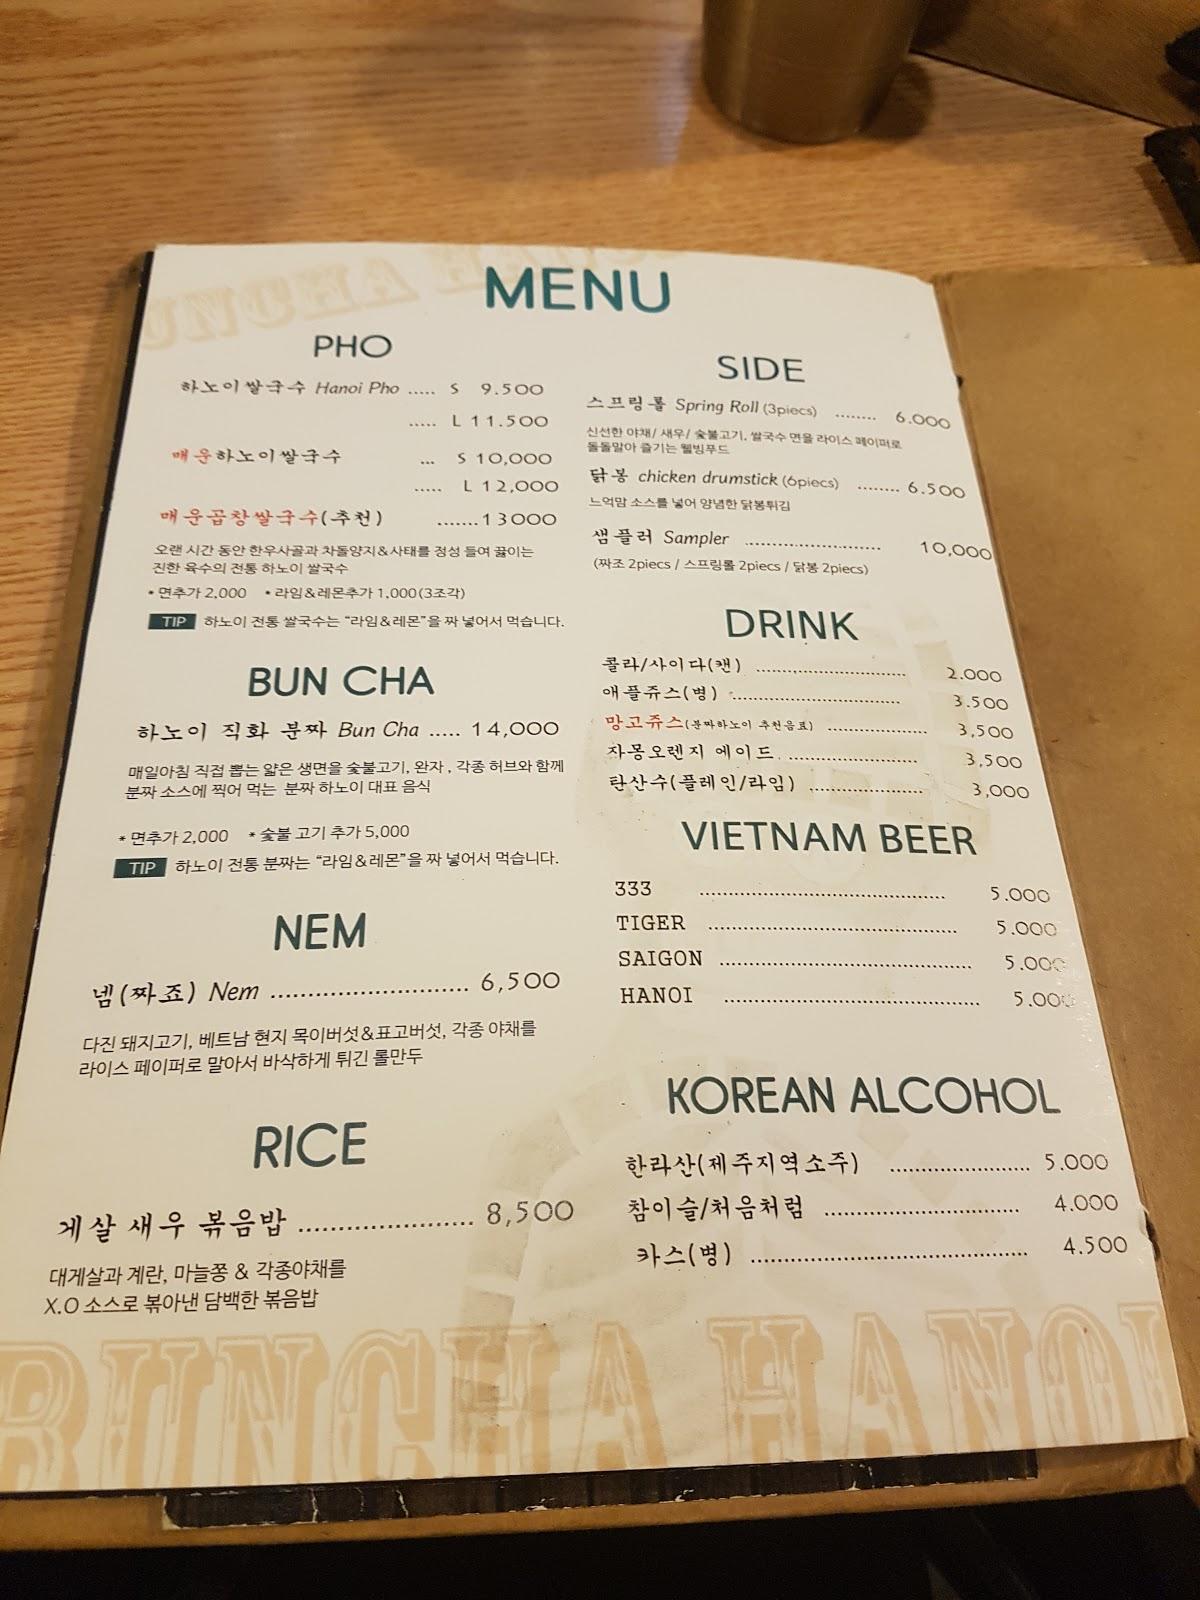 MENU
PHO
하노이쌀국수 Hanoi Pho ..... S 9.500
..... L 11.500
매운하노이쌀국수 ... S 10,000
..... L 12,000
매운곱창쌀국수(추천) .......13000
오랜 시간 동안 한우사골과 차돌양지&사태를 정성 들여 끓이는
진한 육수의 전통 하노이 쌀국수
• 면추가 2,000 • 라임&레몬추가 1,000(3조각)
TIP 하노이 전통 쌀국수는 “라임&레몬”을 짜 넣어서 먹습니다.
BUN CHA
하노이 직화 분짜 Bun Cha ..... 14,000
매일아침 직접 뽑는 얇은 생면을 숯불고기, 완자 , 각종 허브와 함께
분짜 소스에 찍어 먹는 분짜 하노이 대표 음식
* 면추가 2,000 * 숯불 고기 추가 5,000
TIP 하노이 전통 분짜는 “라임&레몬”을 짜 넣어서 먹습니다.
NEM
넴(짜죠) Nem .......................... 6,500
다진 돼지고기, 베트남 현지 목이버섯&표고버섯, 각종 야채를
라이스 페이퍼로 말아서 바삭하게 튀긴 롤만두
RICE
게살 새우 볶음밥 ...................... 8,500
대게살과 계란, 마늘쫑 & 각종야채를
X.O 소스로 볶아낸 담백한 볶음밥
SIDE
스프링롤 Spring Roll (3piecs) ........ 6.000
신선한 야채/ 새우/ 숯불고기, 쌀국수 면을 라이스 페이퍼로
돌돌말아 즐기는 웰빙푸드
닭봉 chicken drumstick (6piecs) ........ 6.500
느억맘 소스를 넣어 양념한 닭봉튀김
샘플러 Sampler .......................... 10,000
(짜조 2piecs / 스프링롤 2piecs / 닭봉 2piecs)
DRINK
콜라/사이다(캔) ............................. 2.000
애플쥬스(병) ................................ 3.500
망고쥬스(분짜하노이 추천음료) .................... 3,500
자몽오렌지 에이드 .......................... 3,500
탄산수(플레인/라임) ....................... 3,000
VIETNAM BEER
333 ........................................ 5.000
TIGER ........................................ 5.000
SAIGON ........................................ 5.000
HANOI ........................................ 5.000
KOREAN ALCOHOL
한라산(제주지역소주) ........................ 5.000
참이슬/처음처럼 ............................... 4.000
카스(병) ........................................ 4.500
BUNCHA HANOI